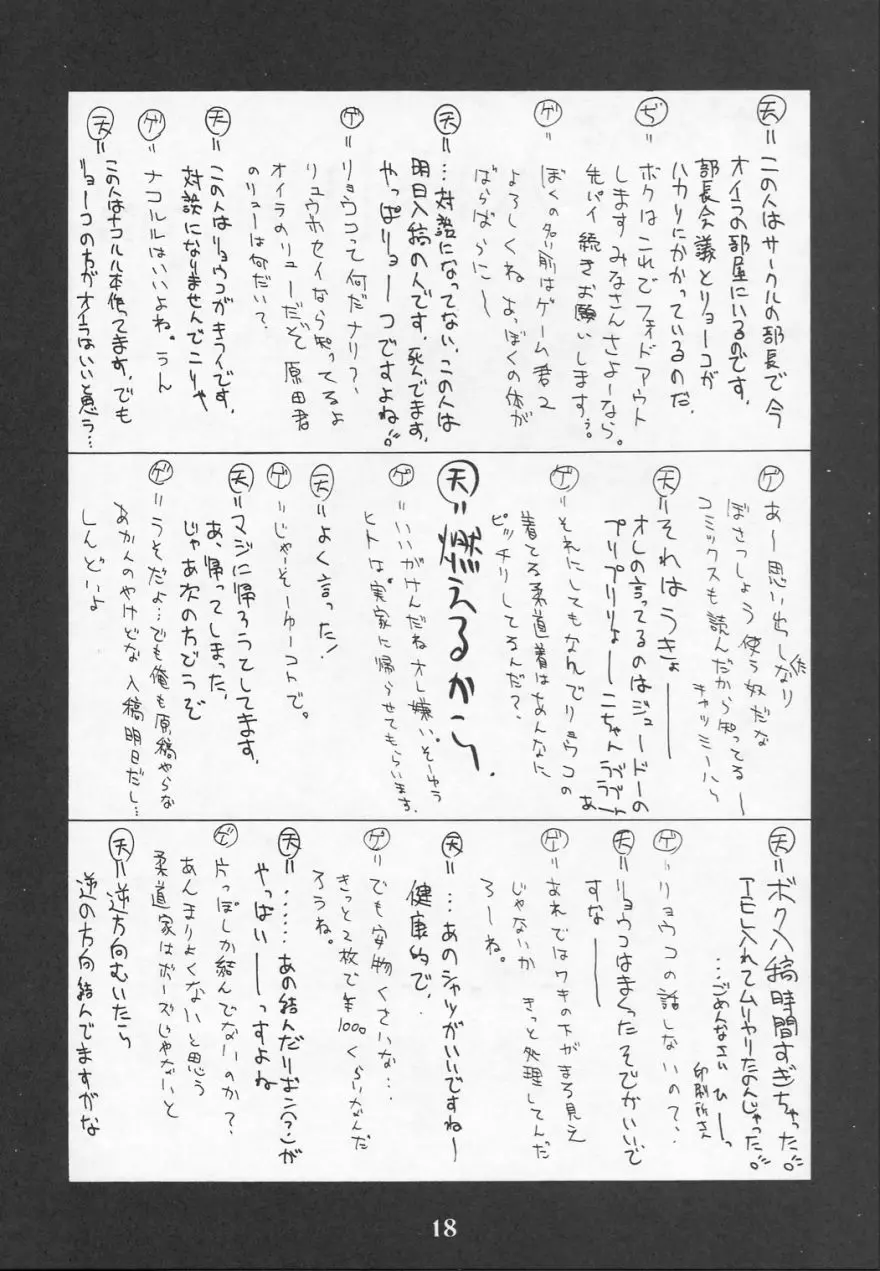 天=この人はサークルの部長で今
オイラの部屋にいるのです。
部長会議とリョーコが
ハカリにかかっているのだ。
ぢ=ボクはこれでフェイドアウト
します みなさんさよーなら。
先パイ続きお願いします。
ゲ=ぼくの名前はゲーム君2
よろしくね あっぼくの体が
ばらばらに〜
天=…対談になってない、この人は
明日入稿の人です。死んでます。
やっぱリョーコですよね
ゲ=リョウコって何だナリ?、
リュウホセイなら知ってるよ
オイラのリューだぞ 原田君
のリューは何だい?
天=この人はリョウコがキライです。
対談になりませんでこりゃ
ゲ=ナコルルはいいよね。うん
天=この人はナコルル本作ってます。でも
リョーコの方がオイラはいいと思う…
ゲ あー思い出しなり
ぼさつしょう 使う奴だな
コミックスも読んだから知ってるー
キャッミーハら
天=それはうきょ――
オレの言ってるのはジュードーの
プリプリリょーこちゃん
ゲ=それにしてもなんでリョウコの
着てる柔道着はあんなに
ピッチリしてるんだ?、
天=燃えるから、
ゲ=いいがけんだねオレ嫌い。そーゆう
ヒトは。実家に帰らせてもらいます。
天=よく言った!
ゲ=じゃーそーゆーコトで。
天=マジに帰ろうてしてます。
あ、帰ってしまった、
じゃあ次の方どうぞ
ゲ=うそだよ…でも俺も原稿やらな
あかんのやけどな 入稿明日だし…
しんどいよ
天=ボク入稿時間すぎちゃった
ムリヤリたのんじゃった
…ごめんなさい ひーっ
印刷所さん
ゲ=リョウコの話しないので?、
天=リョウコはまくったそでがいいで
すな――
ゲ=あれではワキの下がまる見え
じゃないか きっと処理してんだ
ろーね。
天=…あのシャツがいいですね〜
健康的で、
ゲ=でも安物くさいな…
きっと2枚で¥1000くらいなんだ
ろうね。
天=……あの結んだリボン(?)が
やっぱい――っすよね
ゲ=片っぽしか結んでないのか?、
あんまりよくないと思う
柔道家はボーズじゃないと
天=逆方向むいたら
逆の方向結んでますがな
18